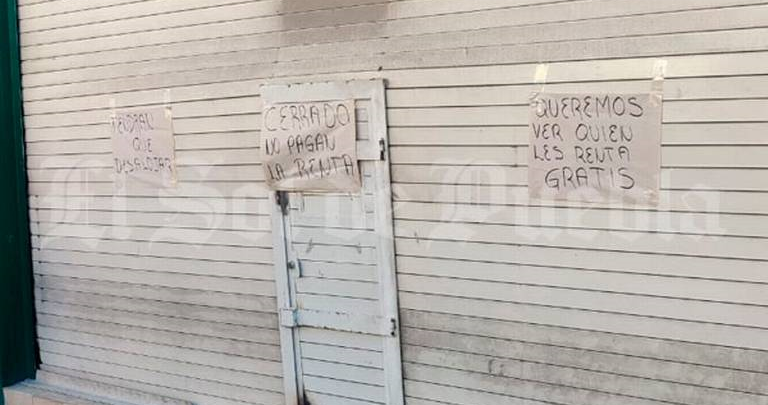 TENDRAN
QUE
DESALOJAR
CERRADO
NO PAGAN
LA RENTA
QUEREMOS
VER QUIEN
LES RENTA
GRATIS
El Sol de Puebla